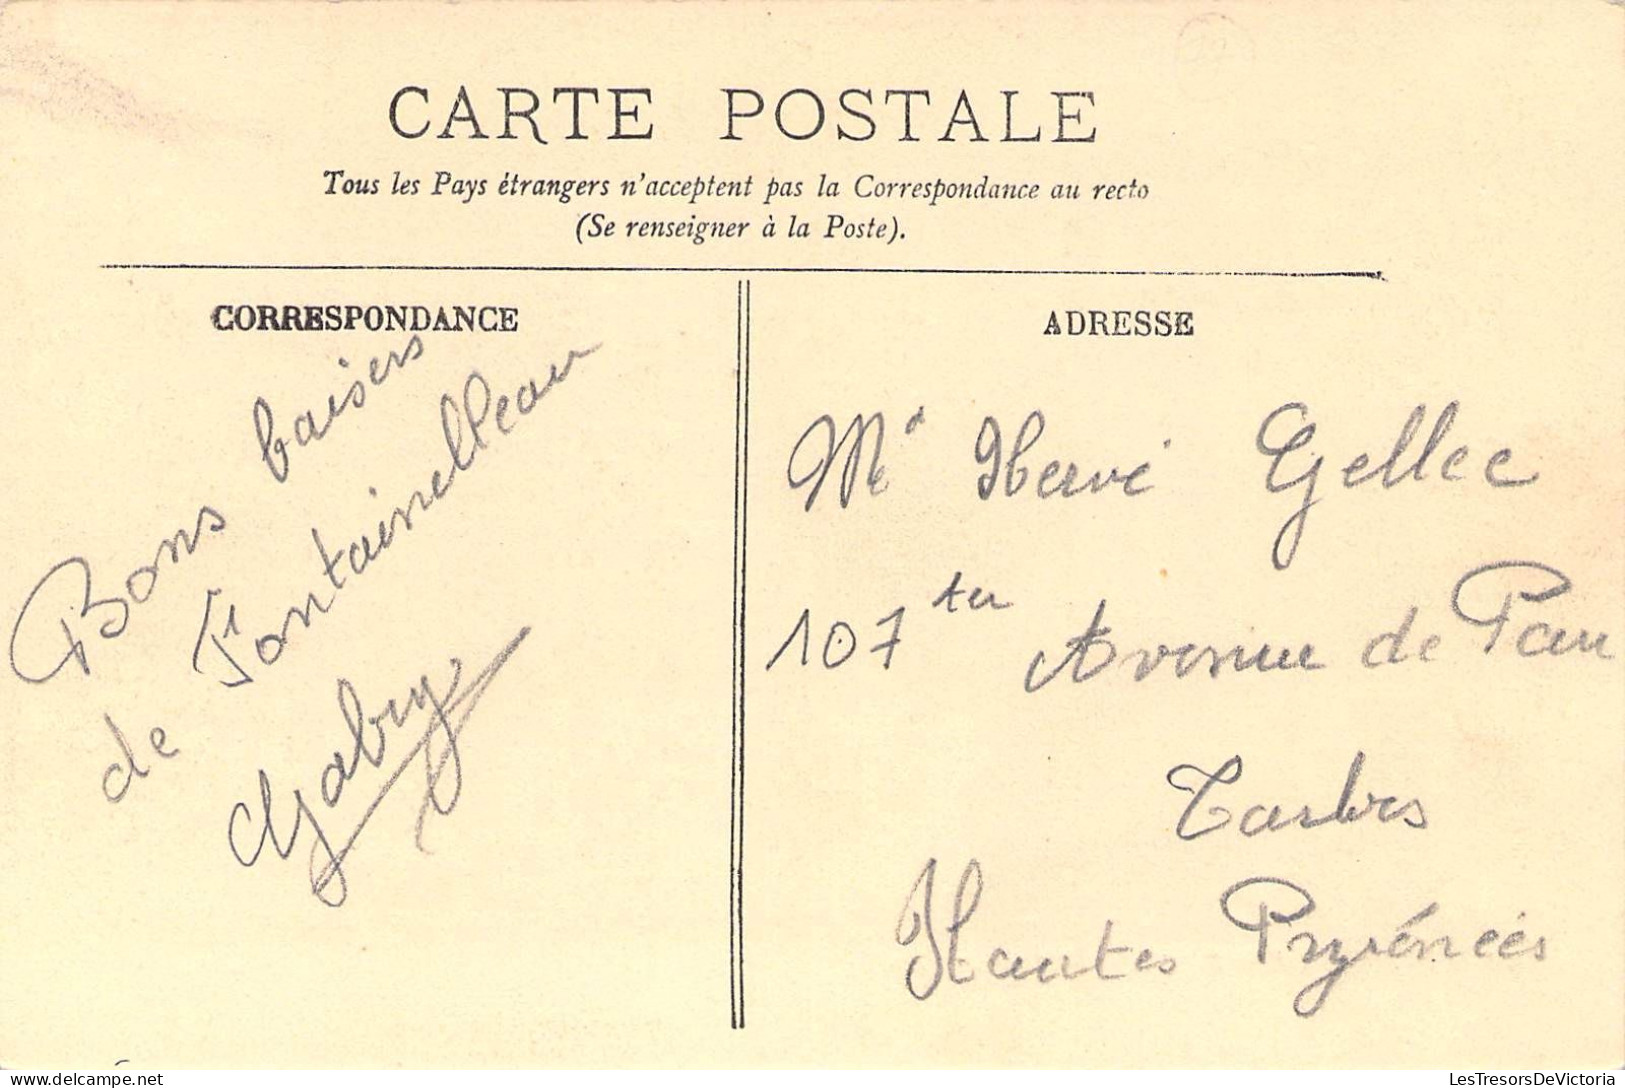 CARTE POSTALE
Tous les Pays étrangers n'acceptent pas la Correspondance au recto
(Se renseigner à la Poste).
CORRESPONDANCE
Bons baisers
de Fontainelleau
Gaby
ADRESSE
Mr Hervé Gellec
107 ter Avenue de Pau
Tarbes
Hautes Pyrénées
LesTresorsDeVictoria